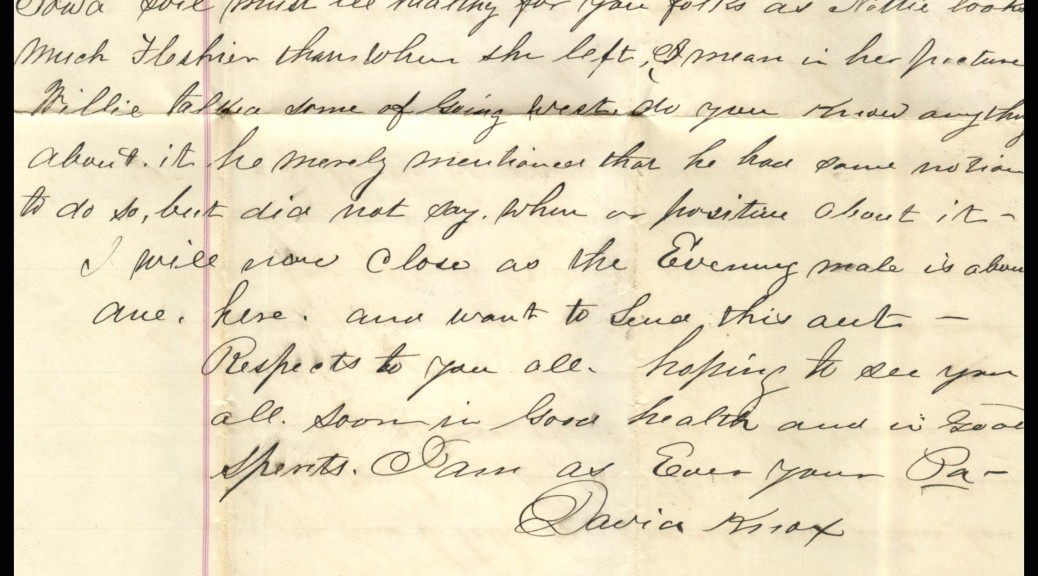 Iowa soil must be healthy for you folks as Nettie looks
much Fleshier than when she left, I mean in her picture
Willie talked some of Going west do you Know anything
about it he merely mentioned that he had some notion
to do so, but did not say. when or positive about it -
I will now Close as the Evening male is about
due. here. and want to Send this out -
Respects to you all. hoping to see you
all. soon in Good health and in Good
sperits. I am as Ever your Pa -
David Knox